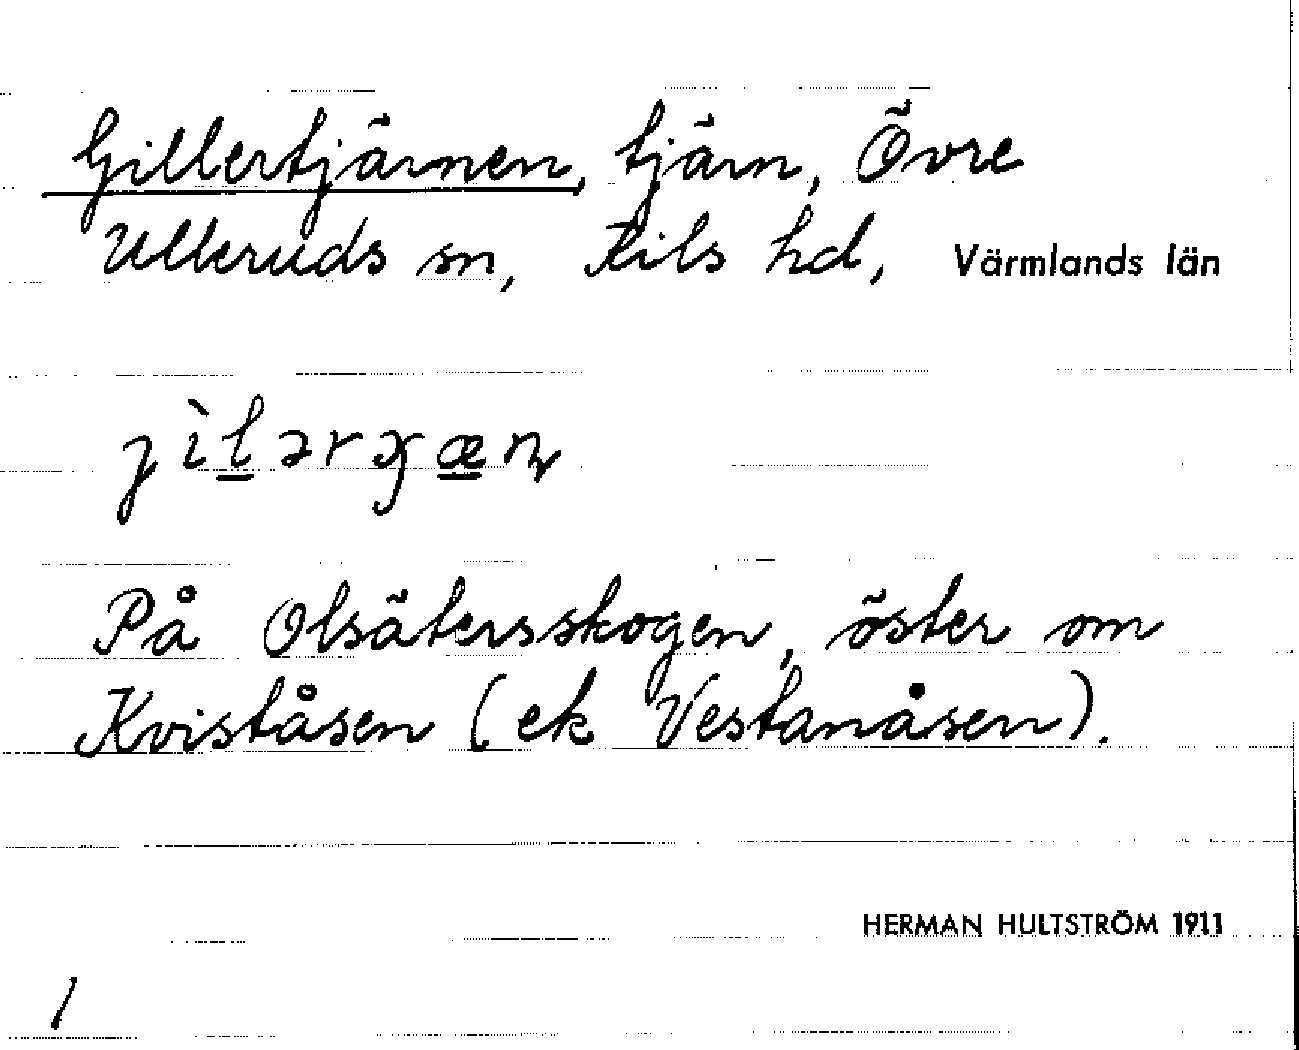 Gillertjärnen, tjärn, Övre
Ulleruds sn, Kils hd, Värmlands län
På Olsätersskogen, öster om
Kviståsen (ek Vestanåsen).
HERMAN HULTSTRÖM 1911
1